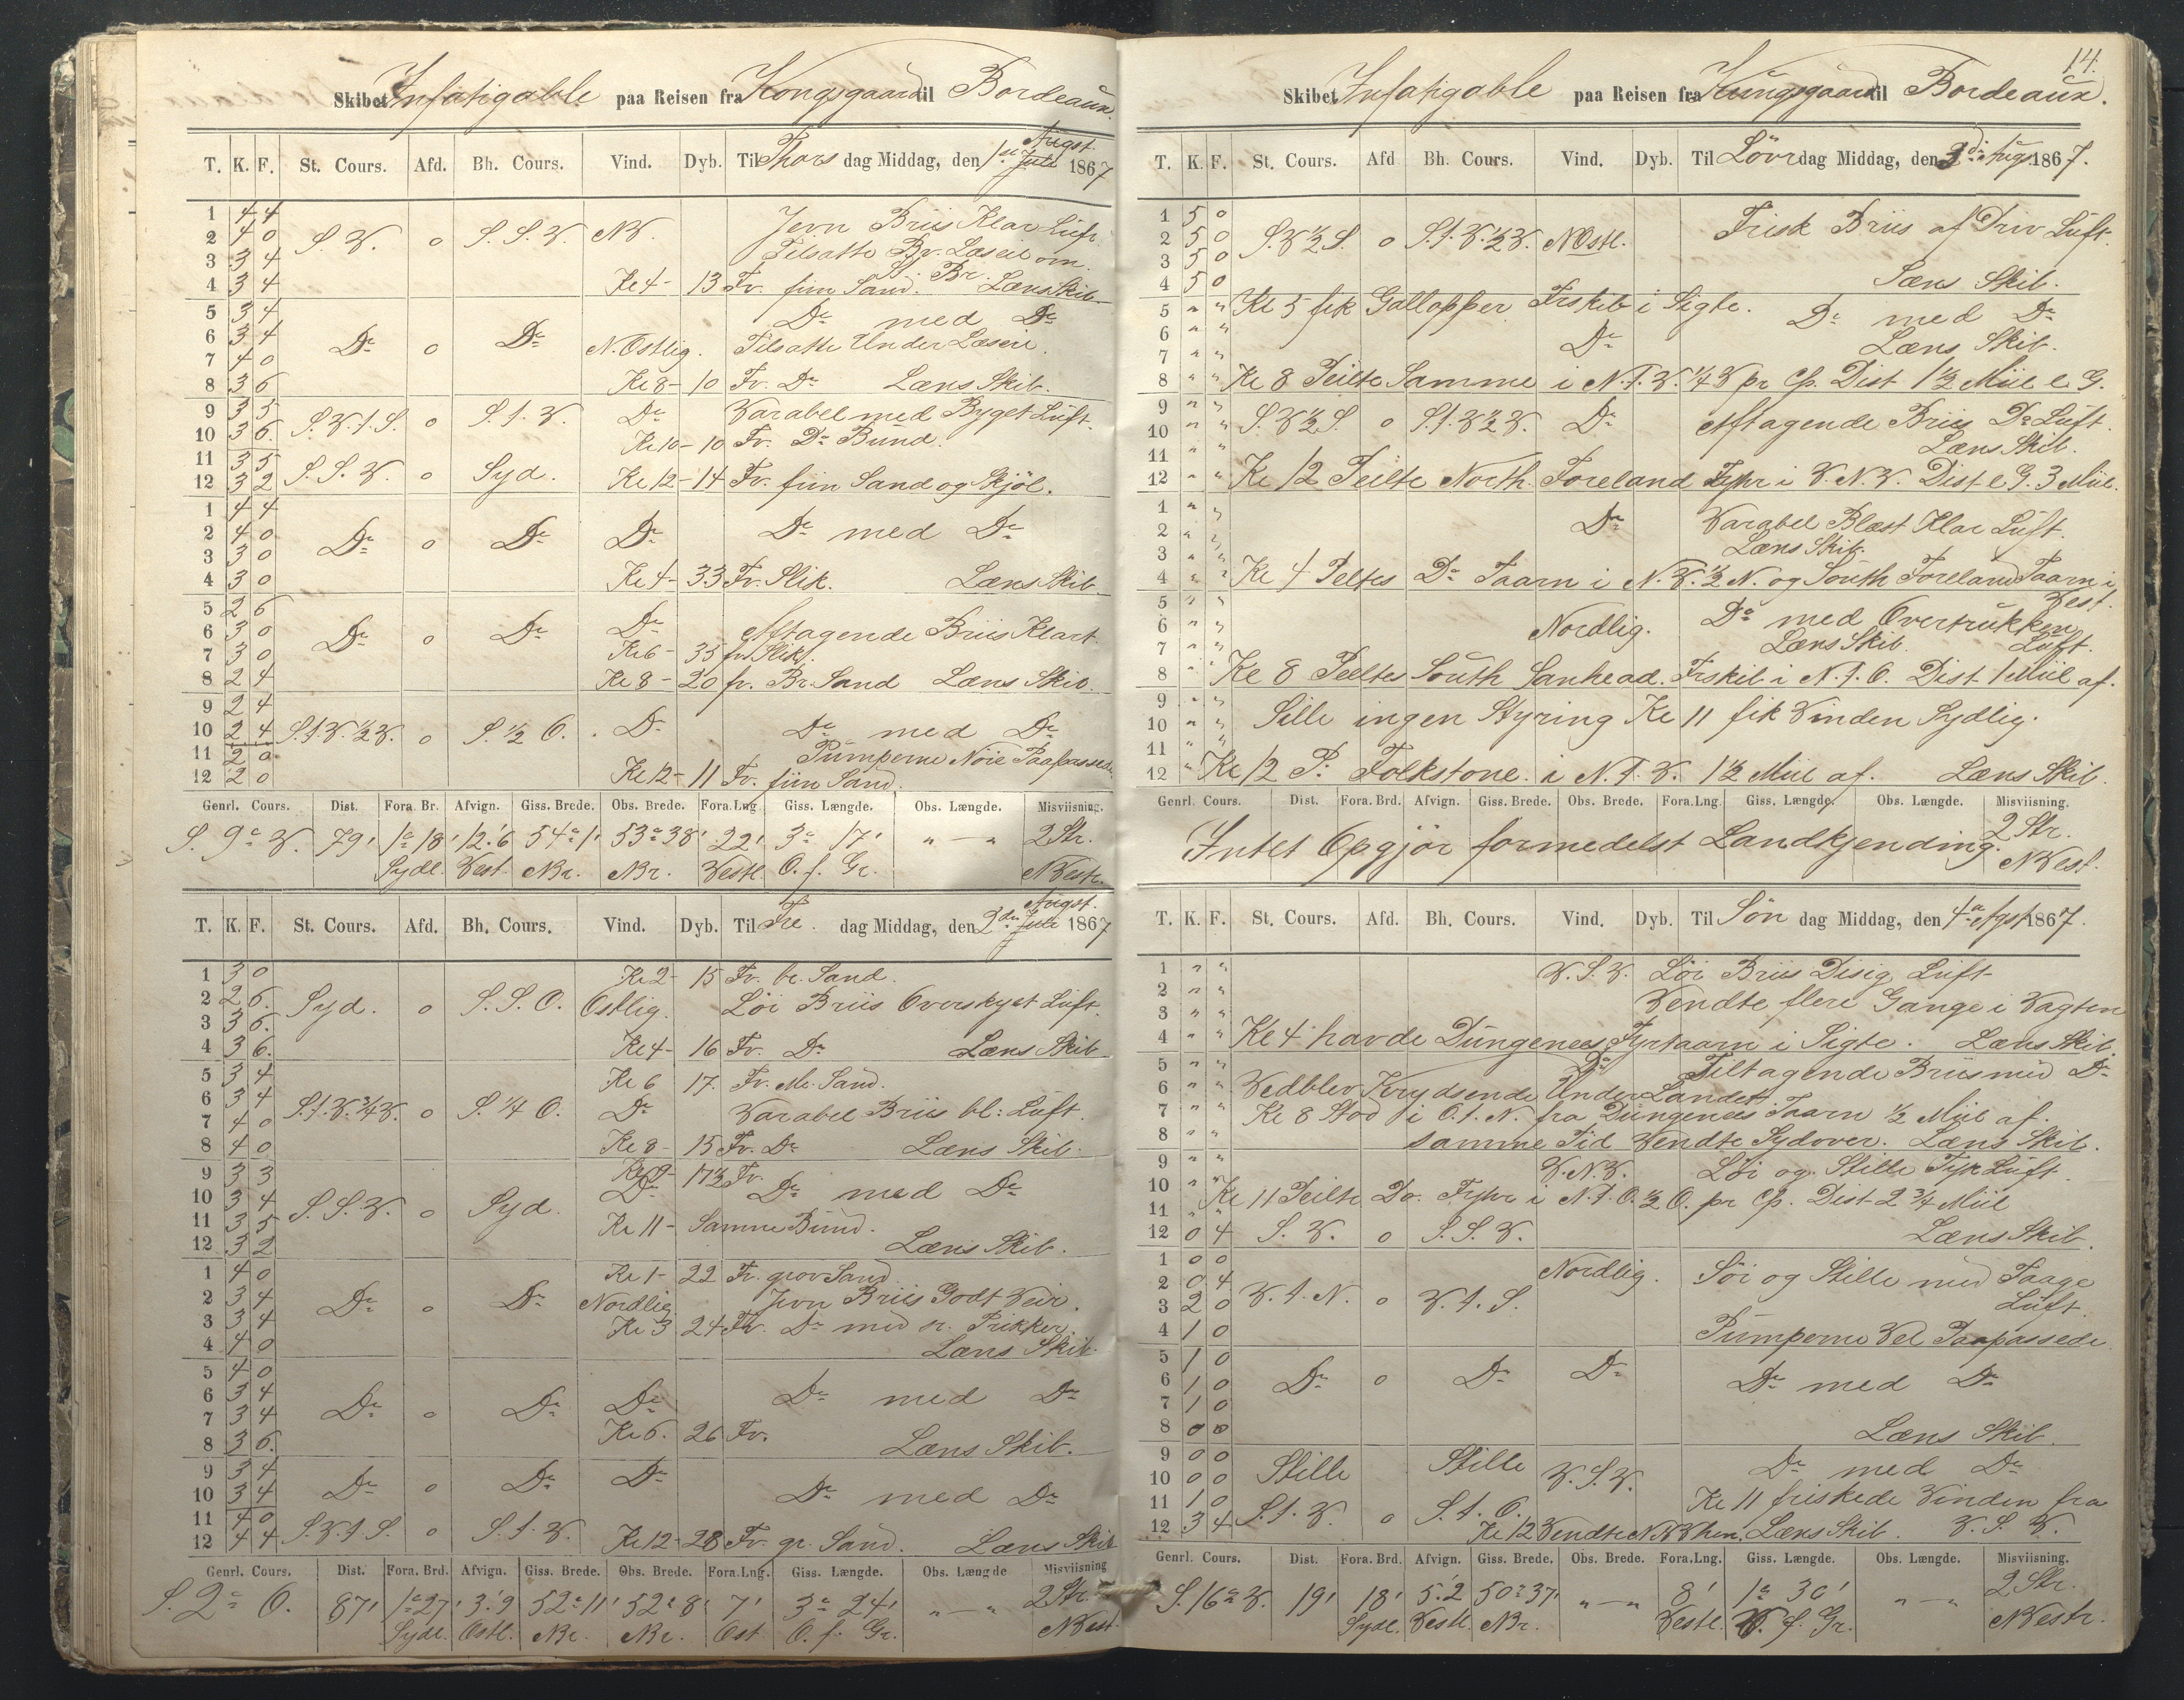 Skibet Infatigable paa Reisen fra Kongsgaard til Bordeaux.
T. K. F. St. Cours. Afd. Bh. Cours. Vind. Dyb. Til Thorsdag Middag, den 1ste Juli Augst. 1867
1 4 4 Jevn Briis Klar Luft
2 4 0 S.V. 0 S.S.V. NV. Tilsatte Br. Læseil om
3 3 4 S. Br.
4 3 4 Kl 4- 13 Fv. fiin Sand. Læns Skib
5 3 4 Do med Do
6 3 4 Do 0 Do N. Ostlig. Tilsatte Under Læseil.
7 4 0
8 3 6 Kl 8- 10 Fv. Do Læns Skib.
9 3 5 S.V.t.S. 0 S.t.V. Do Varabel med Byget Luft.
10 3 6. Kl 10- 10 Fv. Do Bund.
11 3 5
12 3 2 S.S.V. 0 Syd. Kl 12- 14 Fv. fiin Sand og Skjöl.
1 4 4
2 4 0 Do 0 Do Do Do med Do
3 3 0
4 3 0 Kl 4- 33 Fv. Slik. Læns Skib
5 2 6
6 3 0 Do 0 Do Do Aftagende Briis Klart
7 3 0 Kl 6- 35 fv. Slik.
8 2 4 Kl 8- 20 fv. Br. Sand Læns Skib.
9 2 4
10 2 4 S.t.V.½V. 0 S.½O. Do Do med Do
11 2 0 Pumperne Nöie Paapassede
12 2 0 Kl 12- 11 Fv. fiin Sand.
Genrl. Cours. Dist. Fora. Br. Afvign. Giss. Brede. Obs. Brede. Fora. Lng. Giss. Længde. Obs. Længde. Misviisning.
S. 9° V. 79' 1° 18' 12.'6 54° 1' 53° 38' 22' 3° 17' " — " 2 Str.
Sydl. Vest. NBr. NBr. Vestl. O. f. Gr. NVestr.
T. K. F. St. Cours. Afd. Bh. Cours. Vind. Dyb. Til Fre. dag Middag, den 2den Juli Augst. 1867
1 3 0 Kl 2- 15 Fv. br. Sand.
2 2 6. Syd. 0 S.S.O. Ostlig. Löi Briis Overskyet Luft.
3 3 6.
4 3 6. Kl 4- 16 Fv. Do Læns Skib
5 3 4 Kl 6 17. Fv. Sand.
6 3 4 S.t.V.¾V. 0 S.¼O. Do Varabel Briis bl: Luft.
7 4 0
8 4 0 Kl 8- 15 Fv. Do Læns Skib.
9 3 3 Kl 9- 17½ Fv.
10 3 4 S.S.V. 0 Syd. Do Do med Do
11 3 5 Kl 11- Samme Bund.
12 3 2 Læns Skib.
1 4 0 Kl 1- 22 Fv. grov Sand
2 3 4 Do 0 Do Nordlig. Jevn Briis Godt Veir.
3 3 4 Kl 3 24 Fv. Do med Prikker
4 4 0 Læns Skib.
5 4 0
6 3 4 Do 0 Do Do Do med Do
7 3 4 Kl 6. 26 Fv.
8 3 6. Læns Skib.
9 3 4 Do 0 Do Do
10 3 4 Do med Do
11 4 0
12 4 4 S.V.t.S. 0 S.t.V. Kl 12- 28 Fv. gr. Sand. Læns Skib
Genrl. Cours. Dist. Fora. Brd. Afvign. Giss. Brede. Obs. Brede. Fora. Lng. Giss. Længde. Obs. Længde Misviisning
S. 2° O. 87' 1° 27' 3.'9 52° 11' 52° 8' 7' 3° 24' " — " 2 Str.
Sydl. Ostl. NBr. NBr. Ost O. f. Gr. NVest
14.
Skibet Infatigable paa Reisen fra Kungsgaard til Bordeaux.
T. K. F. St. Cours. Afd Bh. Cours. Vind. Dyb. Til Löverdag Middag, den 3die Aug. 1867.
1 5 0 Frisk Briis af Driv Luft.
2 5 0 S.V½S. 0 S.t.V.½V. NOstl.
3 5 0
4 5 0 Læns Skib.
5 " " Kl 5 fik Gallopper Frskib i Sigte. Do med Do
6 " " Do
7 " " Læns Skib.
8 " " Kl 8 Peilte Samme i N.t.V.¼V pr Cp. Dist 1½ Miil e G.
9 " " S.V½S 0 S.t.V½V. Do Aftagende Briis Do Luft.
10 " "
11 " " Læns Skib.
12 " " Kl 12 Peilte North Foreland Fyhr i V.N.V. Dist e G. 3 Miil.
1 " " Do Varabel Blæst Klar Luft.
2 " "
3 " " Læns Skib.
4 " " Kl 4 Peltes Do Taarn i N.V.½N. og South Foreland Taarn i
5 " " Vest.
6 " " Nordlig. Do med Overtrukken
7 " " Læns Skib. Luft.
8 " " Kl 8 Peeltes South Sanhead. Frskib i N.t.O. Dist 1 Miil af.
9 " "
10 " " Stille ingen Styring Kl 11 fik Vinden Sydlig.
11 " "
12 " Kl 12 P. Folkstone i N.t.V. 1½ Miil af. Læns Skib.
Genrl. Cours. Dist. Fora. Brd. Afvign. Giss. Brede. Obs. Brede. Fora. Lng. Giss. Længde. Obs. Længde. Misviisning.
Intet Opgjör formedelst Landkjending. 2 Str.
NVest.
T. K. F. St. Cours. Afd. Bh. Cours. Vind. Dyb. Til Sön dag Middag, den 4de Agst 1867.
1 " " V.S.V. Löi Briis Disig Luft
2 " " Vendte flere Gange i Vagten
3 " "
4 " " Kl 4 havde Dungenees Fyrtaarn i Sigte. Læns Skib.
5 " " Do Tiltagende Briis med Do
6 " " Vedblev Krydsende Under Landet
7 " " Kl 8 Stod i O.t.N. fra Dungenees Taarn ½ Miil af.
8 " " samme Tid Vendte Sydover. Læns Skib.
9 " " V.N.V. Löi og Stille Tyk Luft
10 " " Kl 11 Peilte Do. Fyhr i N.t.O.½O. pr Cp. Dist 2¾ Miil
11 " "
12 0 4 S.V. 0 S.S.V. Læns Skib.
1 0 0 Nordlig. Löi og Stille med Taage
2 0 4 V.t.N. 0 V.t.S.
3 2 0 Luft.
4 1 0 Pumperne Vel Paapassede.
5 1 0
6 1 0 Do 0 Do Do Do med Do
7 1 0
8 0 0 Læns Skib.
9 0 0 Stille Stille V.S.V. Do med Do
10 0 0
11 1 0 S.t.V. 0 S.t.O. Kl 11 friskede Vinden fra
12 3 4 Kl 12 Vendte NVhen. Læns Skib. V.S.V.
Genrl. Cours. Dist. Fora. Brd. Afvign. Giss. Brede. Obs. Brede. Fora. Lng. Giss. Længde. Obs. Længde. Misviisning.
S. 16° V. 19' 18' 5.'2 50° 37' " — " 8' 1° 30' " — " 2 Str.
Sydl. Vestl. NBr. Vestl. V. f. Gr. NVestr.